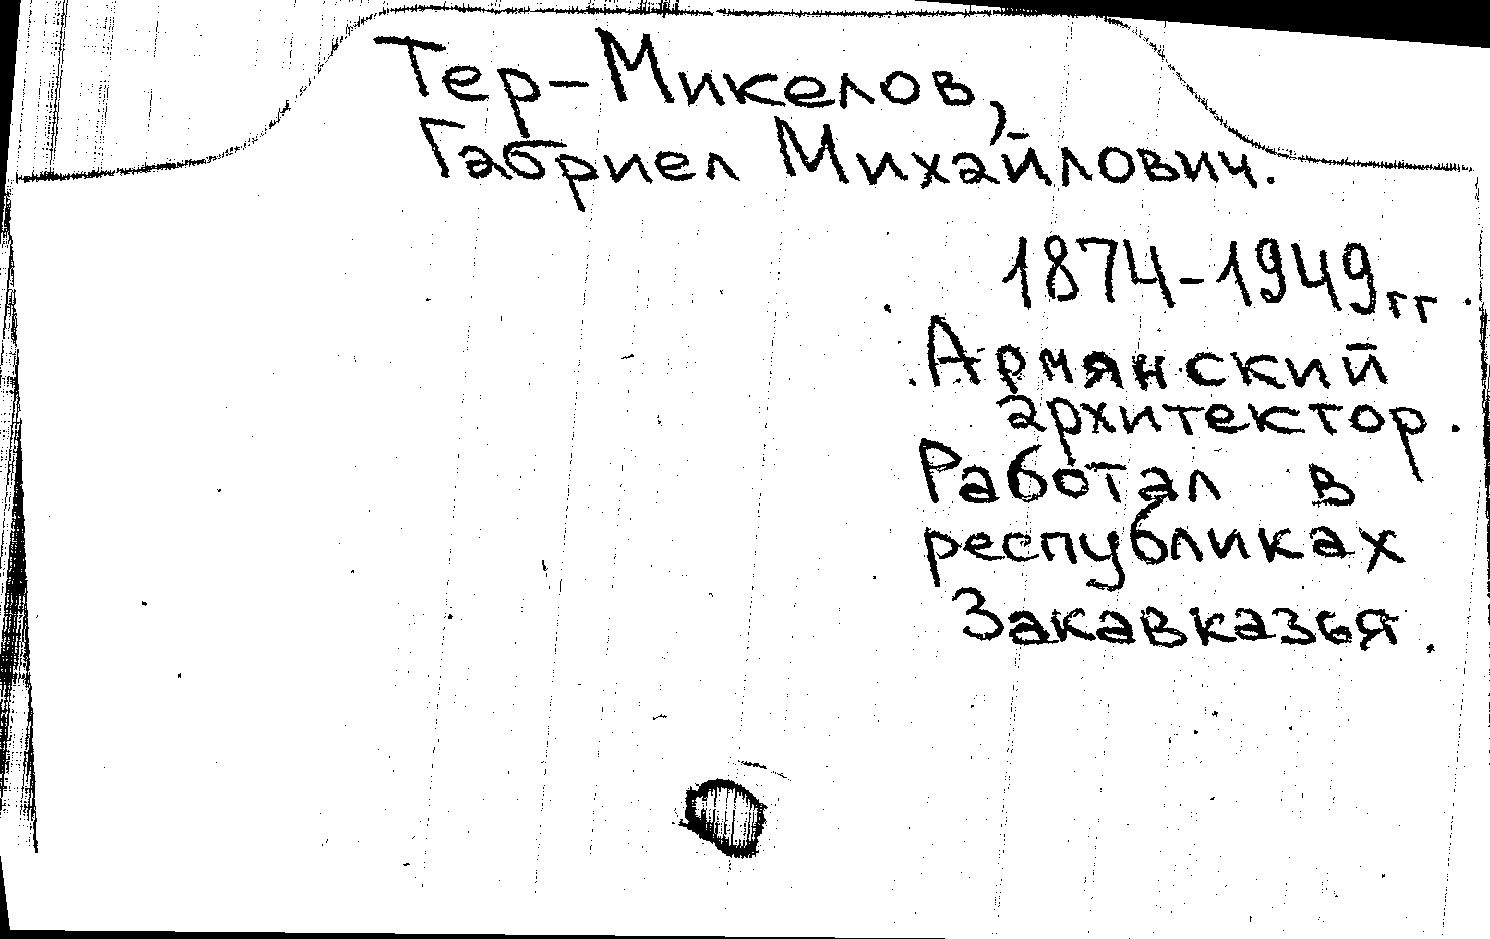 Тер-Микелов,
Габриел Михайлович.
1874-1949гг.
Армянский
архитектор.
Работал в
республиках
Закавказья.